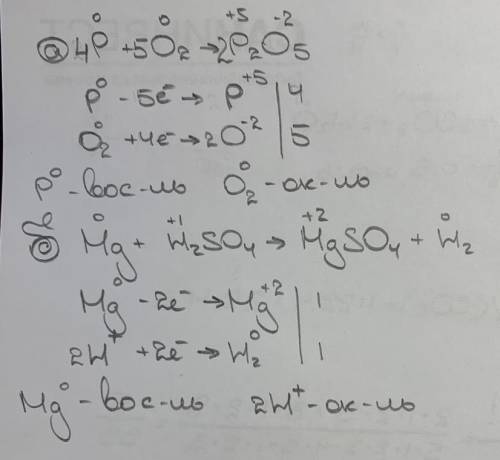 а) 4P⁰ + 5O₂⁰ → 2P₂⁺⁵O₅⁻²
P⁰ - 5e⁻ → P⁺⁵ | 4
O₂⁰ + 4e⁻ → 2O⁻² | 5
P⁰ - вос-ль O₂⁰ - ок-ль
Mg⁰ + H₂⁺¹SO₄ → Mg⁺²SO₄ + H₂⁰
Mg⁰ - 2e⁻ → Mg⁺² | 1
2H⁺ + 2e⁻ → H₂⁰ | 1
Mg⁰ - вос-ль 2H⁺ - ок-ль